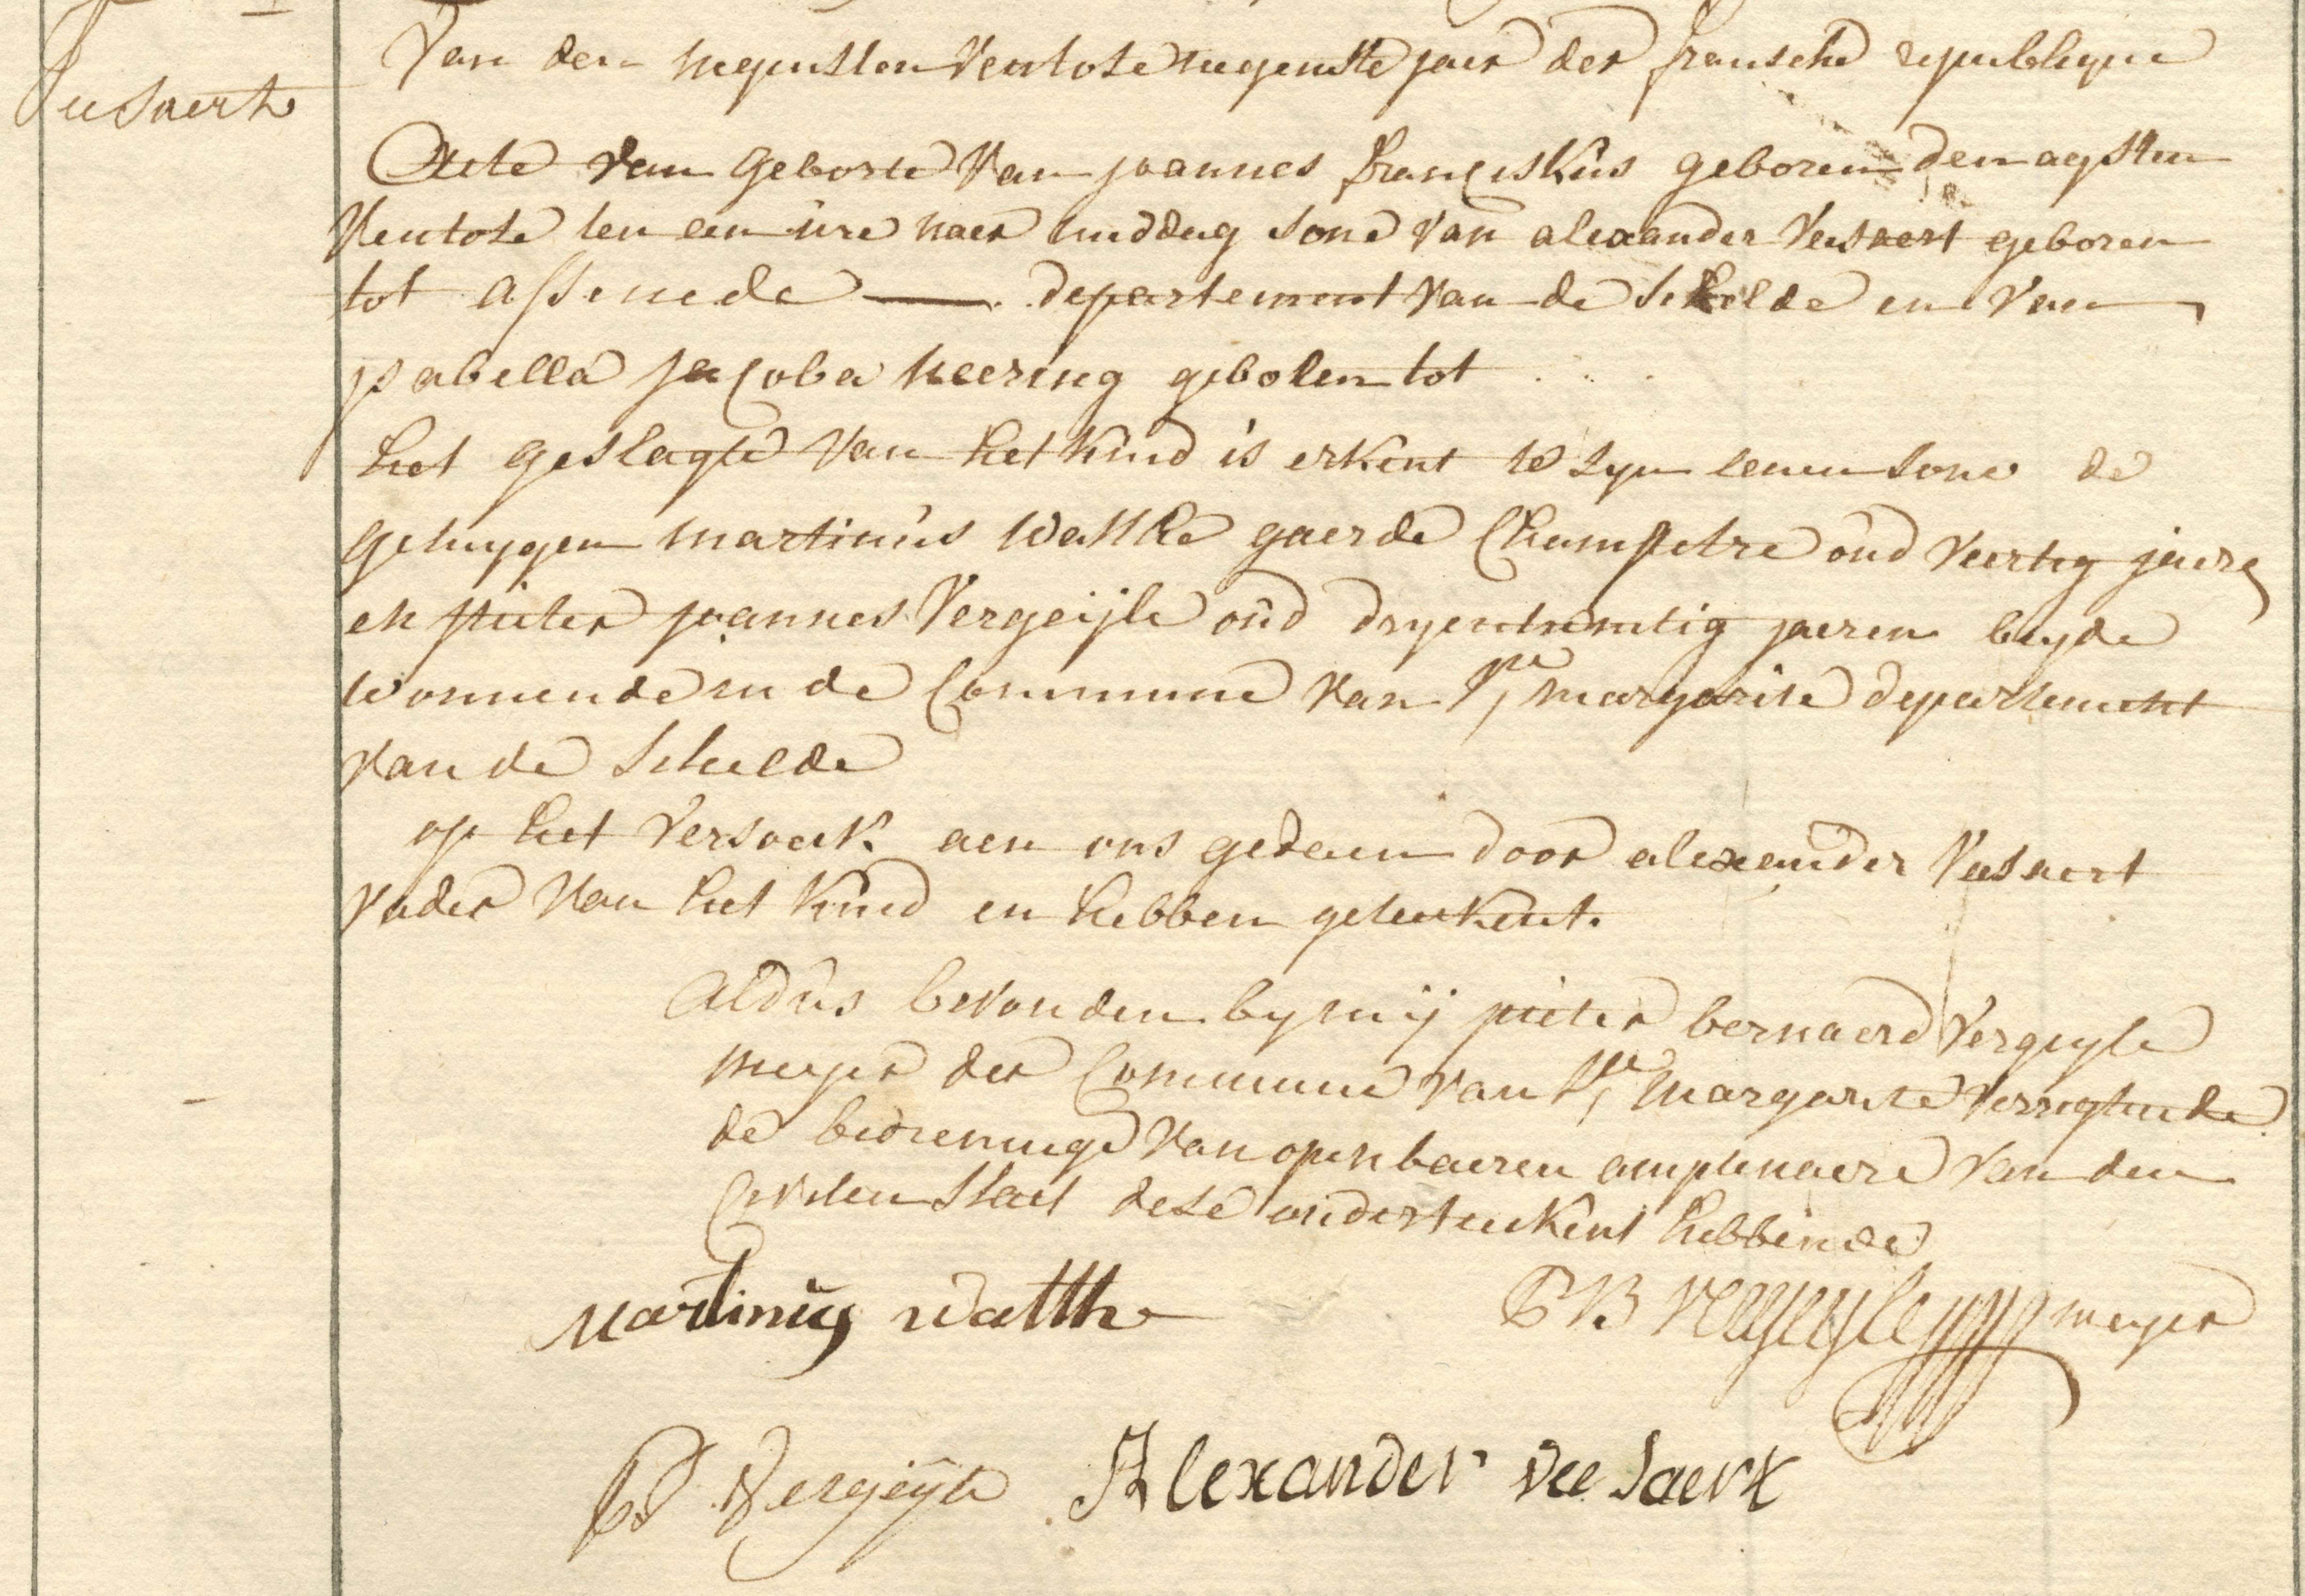 Veesaert
Van den negensten Ventose negenste jaer der fransche republique
Acte van geborte van joannes franciskus geboren den agsten
Ventose ten een ure naer middag sone van alexander Veesaert geboren
tot assenede departement van de Schelde en van
ysabella jacoba neering geboren tot
het geslagte van het kind is erkent te syn eenen sone de
getuygen martinus Watthe gaerde Champetre oud veertig jaere
en pieter joannes Vergeijle oud dryentwintig jaeren beyde
wonnende in de Commune van Ste margarite departement
van de Schelde
op het Versoeck aen ons gedaen door alexander Veesaert
vader van het kind en hebben geteekent.
Aldus bevonden by mij pieter bernaerd Vergeyle
meyer der Commune van Ste Margarite Verrigtende
de bedieninge van openbaeren amptenaere van den
Civilen Staet dese onderteekent hebbende
Martinus Watthe
PB Vergeyle meyer
PJ Vergeijle Alexander vee saert